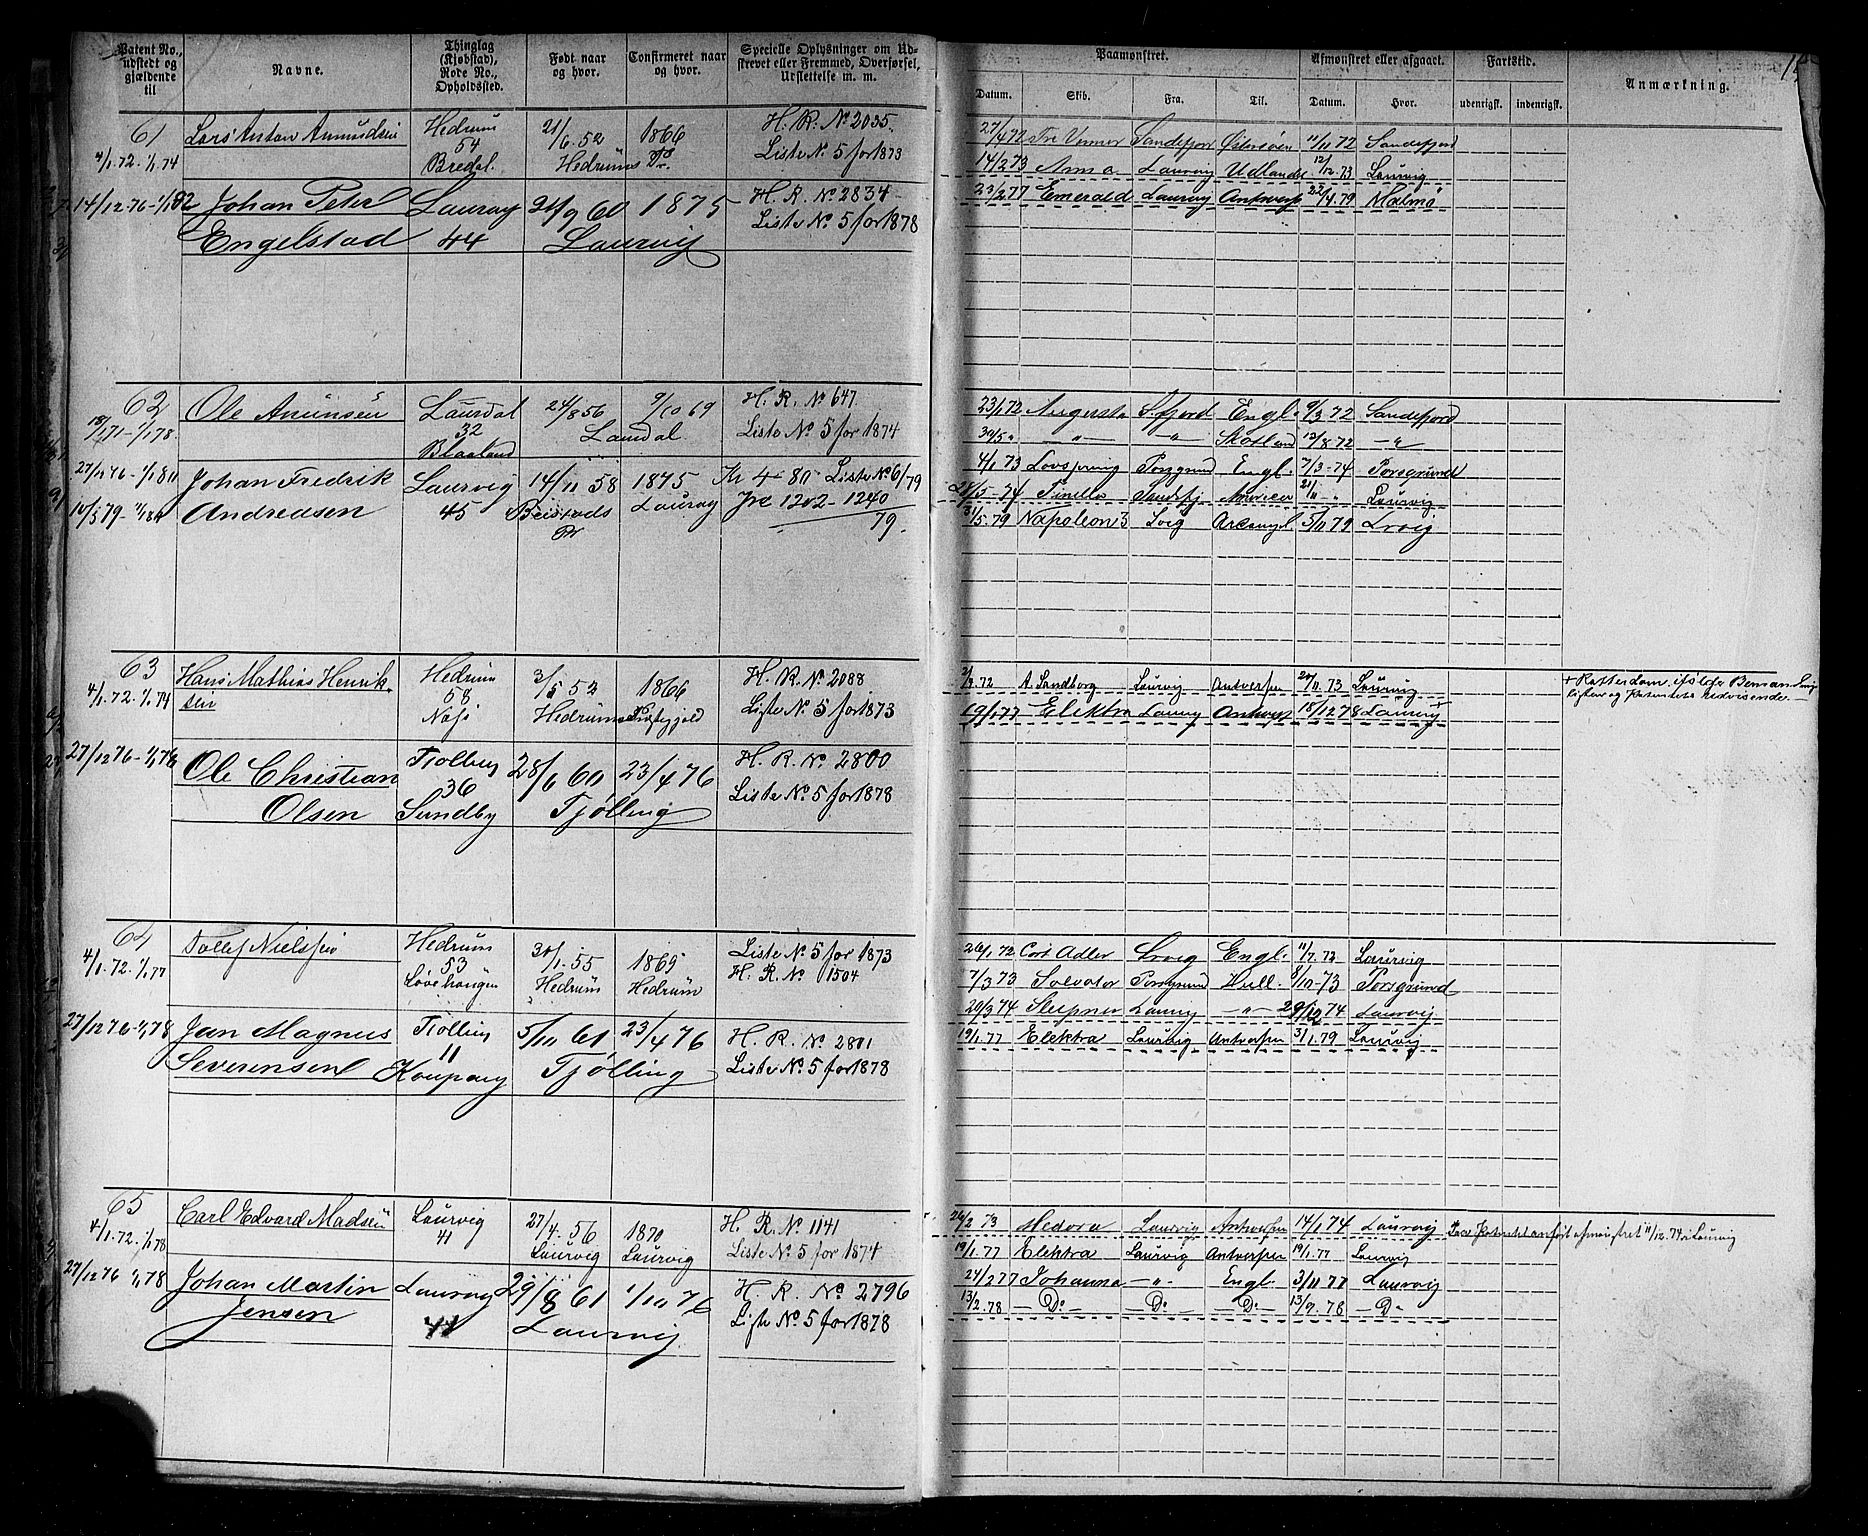 Patent No., udstedt og gjældende til
Navne.
Thinglag (Kjøbstad), Rode No., Opholdssted.
Født naar og hvor.
Confirmeret naar og hvor.
Specielle Oplysninger om Udskrevet eller Fremmed, Overførsel, Udslettelse m. m.
61
4/1.72. 1/1 74
Lars Anton Amundsen
Hedrum 54 Bredal.
21/6.52 Hedrums Pr.
1866
H. R. No 2035.
Liste No 5 for 1873
14/12 76-1/1 82
Johan Peter
Engelstad
Laurvig
44
21/9 60
1875
Laurvig
H. R. No 2834
Liste No 5 for 1878
62
18/12 71-1/1 78.
Ole Amunsen
Laurdal
32
Blaaland
24/8 56
9/10 69
Laurdal
H. R. No 647
Liste No 5 for 1874
27/12 76-1/1 80
10/5 79-
Johan Fredrik
Andreasen
Laurvig
45
14/11 58
Beistads Pr
1875
Laurvig
Kr 4-80 Liste No 6/79
Jre 1202-1240
79.
63
4/1.72. 1/1 74
Hans Mathias Henrik-
sen
Hedrum
58
3/5 52
Hedrums
1866
H. R. No 2088
Liste No 5 for 1873
27/12 76-1/1 78
Ole Christian
Olsen
Tjølling
36
Sundby
28/6 60
23/4 76
Tjølling
H. R. No 2800
Liste No. 5 for 1878
64
4/1.72. 1/1 77
Tollef Nielsen
Hedrum
53
30/1.55
Hedrum
1869
Hedrum
Liste No. 5 for 1873
H. R. No 1504
27/12 76-1/1 78
Jan Magnus
Severensen
Tjolling
11
Kaupang
5/11 61
23/4 76
Tjølling
H. R. No 2801
Liste No. 5 for 1878
65
4/1.72. 1/1 78
Carl Edvard Madsen
Laurvig
41
27/4. 56
Laurvig
1870
Laurvig
H. R. No 1141
Liste No. 5 for 1874
27/12 76 1/1 78
Johan Martin
Jensen
Laurvig
41
29/8 61
1/10 76
Laurvig
H. R. No 2796
Liste No. 5 for 1878
Paamønstret.
Afmønstret eller afgaaet.
Fartstid.
Anmærkning.
Datum.
Skib.
Fra.
Til.
Datum.
Hvor.
udenrigsk.
indenrigsk.
27/4 72 Tre Venner Sandefjord Østersøen 11/11 72 Sandefjord
14/2 73 Anna Laurvig Udlandet 12/12.73 Laurvig
23/2 77 Emerald Laurvig Antwerp 22/4 79 Malmø
23/1 72 Augusta S.fjord Engl. 9/3 72 Sandefjord
30/5 " — " — — " Skotland 12/8 72 — "
4/1 73 Lovspring Porsgrund Engl. 7/3-74 Porsgrund
Sandefj 21/11 - " Laurvig
31/5.79 Napoleon 3 Lvig Arkangel 5/11 79 Lrvig
2/9.72 A. Sandborg Laurvig Antverpen 20/11.73 Laurvig
19/1 77 Elektra Laurvig Antwerp 18/12 78 Laurvig +
+ Rotterdam, istedf. Bemanding
26/1.72 Cort Adler Lrvig Engl. 11/7.72 Laurvig
7/3 73 Salvator Porsgrund Hull. 8/10 73 Porsgrund
20/3 74 Sleipner Laurvig — " — 29/12 74 Laurvig
19/1.77 Elektra Laurvig Antverpen 31/1.79 Laurvig
26/2 73 Medora Laurvig Antverpen 14/1 74 Laurvig
19/1.77 Elektra Laurvig Antverpen 19/1.77 Laurvig
24/2 77 Johanna — " — Engl. 3/11 77 Laurvig
13/2.78 — Do — — Do — — Do — 13/9.78 — Do —